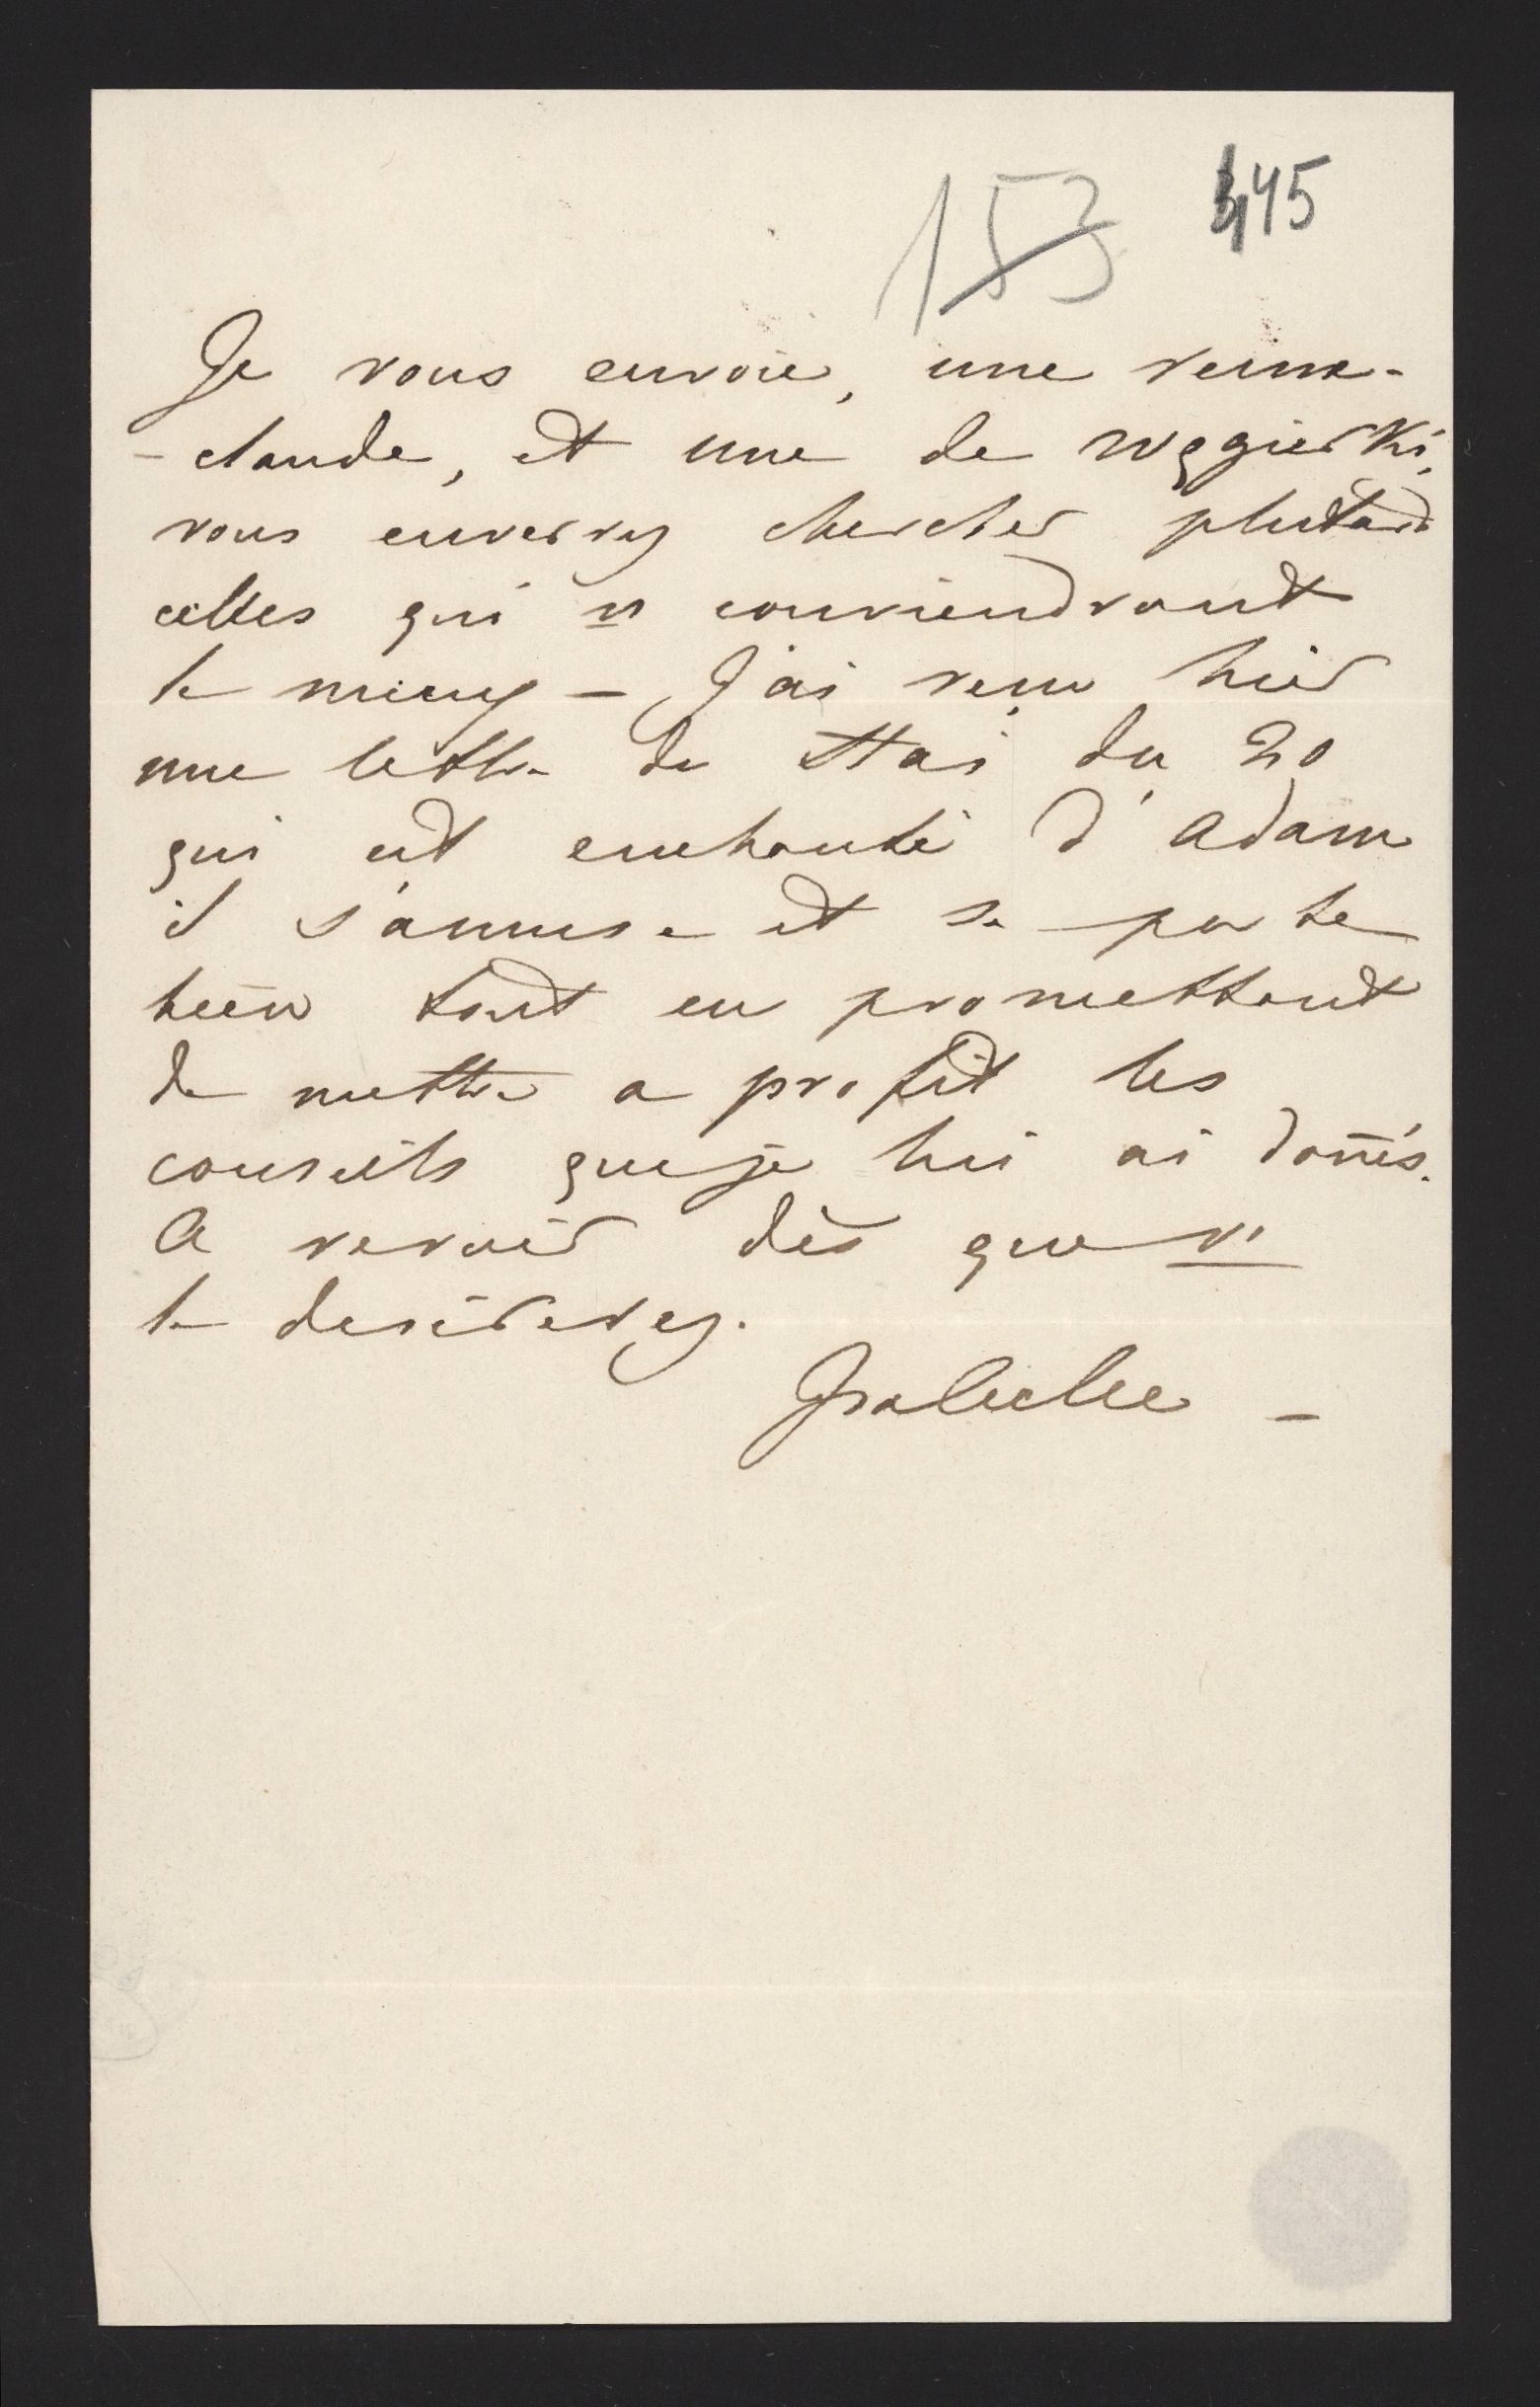 153 445
Je vous envoie, une reine-
- claude, et une de węgierki,
vous enverrez chercher plustard
celles qui vs conviendront
le mieux – J'ai reçu hier
une lettre de Staś du 20
qui est enchanté d'Adam
il s'amuse et se porte
bien tout en promettant
de mettre a profit les
conseils que je lui ai donés.
A revoir dès que vs
le desirerez.
Isabelle –